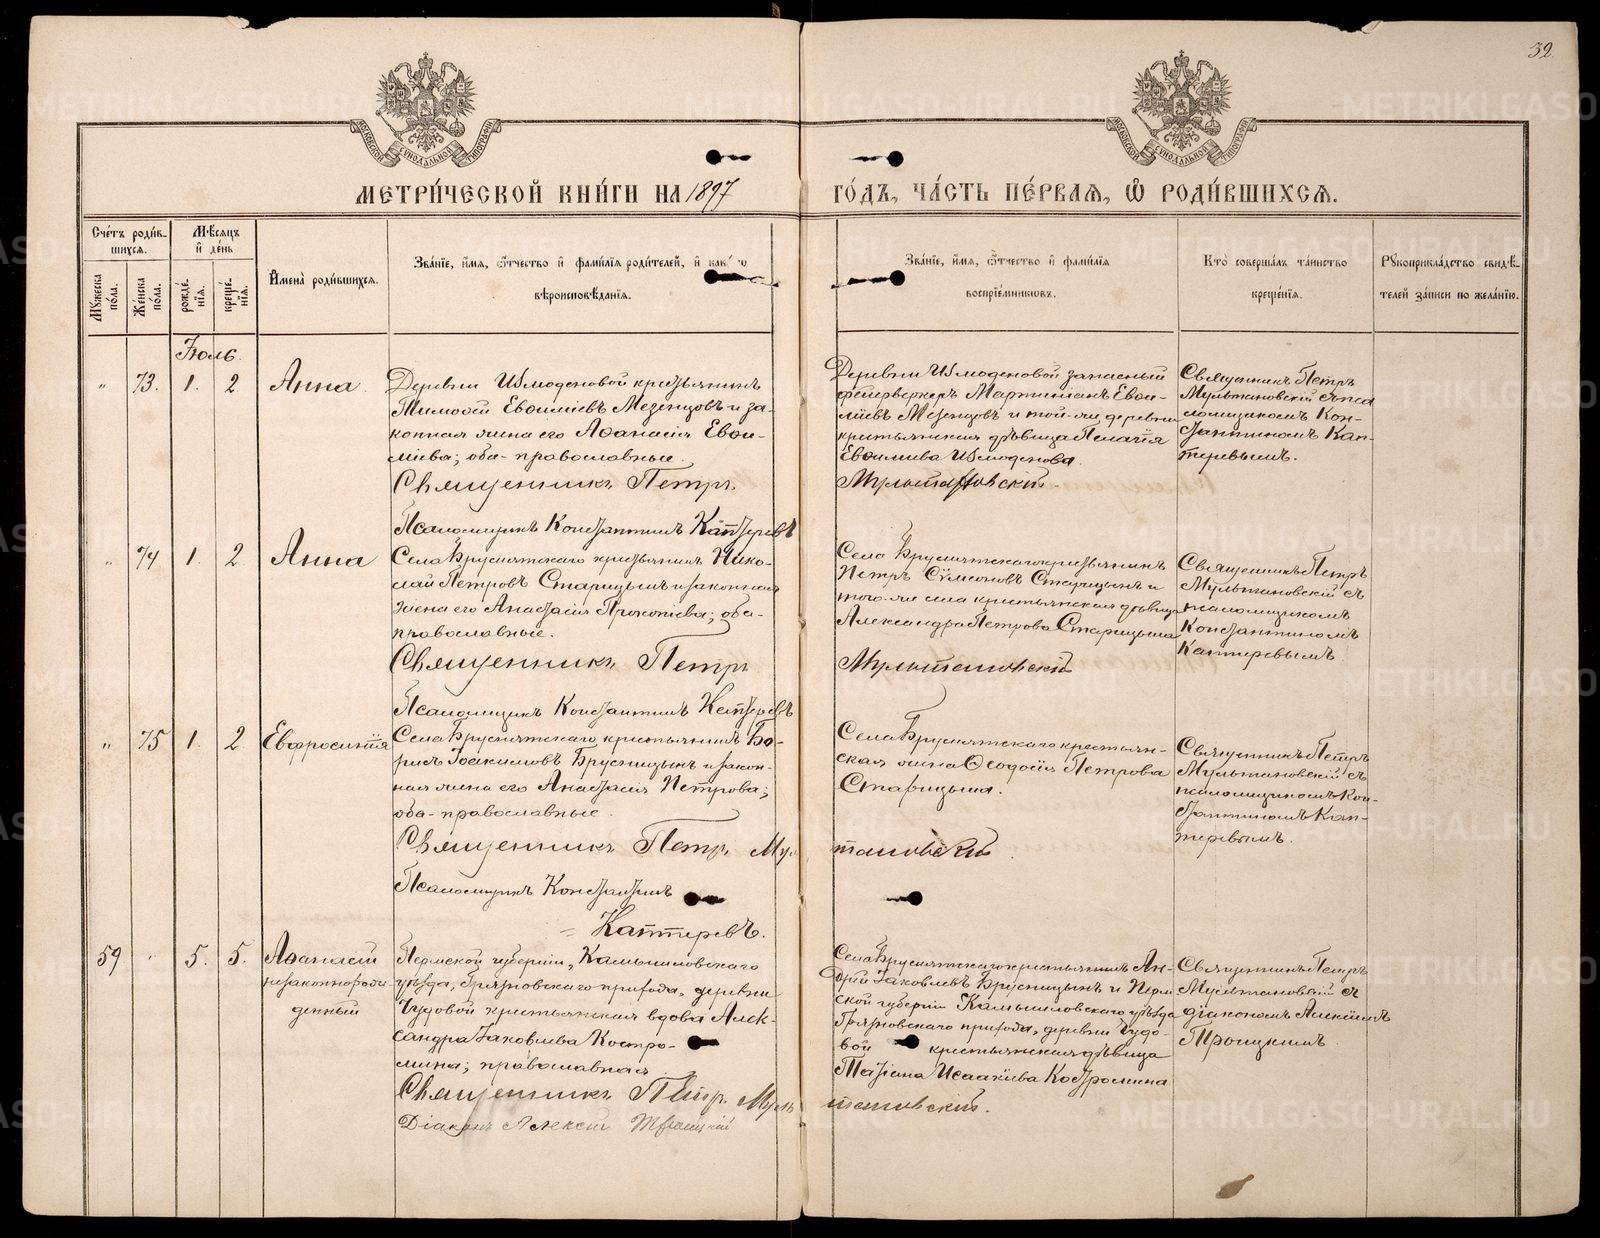 32.
МОСКОВСКОЙ СѴНОДАЛЬНОЙ ТИПОГРАФІИ
МОСКОВСКОЙ СѴНОДАЛЬНОЙ ТИПОГРАФІИ
МЕТРИ́ЧЕСКОЙ КНИ́ГИ НА 1897 ГО́ДЪ, ЧА́СТЬ ПЕ́РВАЯ, Ѡ РОДИ́ВШИХСЯ.
Сче́тъ роди́в-
шихся.
Мꙋжеска по́ла.
Же́нска по́ла.
Мѣ́сяцъ и де́нь
рожде́нія.
креще́нія.
Имена̀ роди́вшихся.
Зва́ніе, и́мя, ѻ́тчество и фами́лія роди́телей, и како́гѡ
вѣроисповѣ́данія.
Зва́ніе, и́мя, ѻ́тчество и фами́лія
воспріе́мниковъ.
Кто̀ соверша́лъ та́инство
креще́нія.
Рꙋкоприкла́дство свидѣ́-
телей за́писи по жела́нію.
Іюль.
" 73. 1. 2 Анна.
Деревни Измоденовой крестьянинъ
Тимоѳей Евѳиміевъ Мезенцовъ и за-
конная жена его Аѳанасія Евѳи-
міева; оба православные.
Священникъ Петръ
Псаломщикъ Константинъ Каптеревъ
Деревни Измоденовой запасный
фейерверкеръ Мартиніанъ Евѳи-
міевъ Мезенцовъ и той-же деревни
крестьянская дѣвица Пелагія
Евѳимиева Измоденова.
Мультановскій.
Священникъ Петръ
Мультановскій съ пса
ломщикомъ Кон-
стантиномъ Кап-
теревымъ.
" 74 1. 2 Анна
Села Брусянтскаго крестьянинъ Нико-
лай Петровъ Старицынъ и законная
жена его Анастасія Прокопіева; оба
православные.
Священникъ Петръ
Псаломщикъ Константинъ Каптеревъ
Села Брусянтскаго крестьянинъ
Петръ Сѵмеоновъ Старицынъ и
того-же села крестьянская дѣвица
Александра Петрова Старицына
Мультановскій
Священникъ Петръ
Мультановскій съ
псаломщикомъ
Константиномъ
Каптеревымъ
" 75 1. 2 Евфросинія
Села Брусянтскаго крестьянинъ Бо-
рисъ Іоакимовъ Брусницынъ и закон-
ная жена его Анастасія Петрова;
оба православные.
Священникъ Петръ Муль
тановскій
Псаломщикъ Константинъ
Каптеревъ.
Села Брусянтскаго крестьян-
ская жена Ѳеодосія Петрова
Старицына.
Священникъ Петръ
Мультановскій съ
псаломщикомъ Кон-
стантиномъ Кап-
теревымъ.
59 " 5. 5. Аѳанасій
незаконнорож-
денный
Пермской губерніи, Камышловскаго
уѣзда, Грязновскаго прихода, деревни
Чудовой крестьянская вдова Алек-
сандра Іаковлева Костро-
мина; православная.
Священникъ Петръ Муль
тановскій.
Діаконъ Алексій Троицкій
Села Брусянтскаго крестьянинъ Ан-
дрей Іаковлевъ Брусницынъ и Перм
ской губерніи Камышловскаго уѣзда
Грязновскаго прихода, деревни Чудо-
вой крестьянская дѣвица
Татіана Исаакіева Костромина
Священникъ Петръ
Мультановскій съ
діакономъ Алексіемъ
Троицкимъ.
METRIKI.GASO-URAL.RU